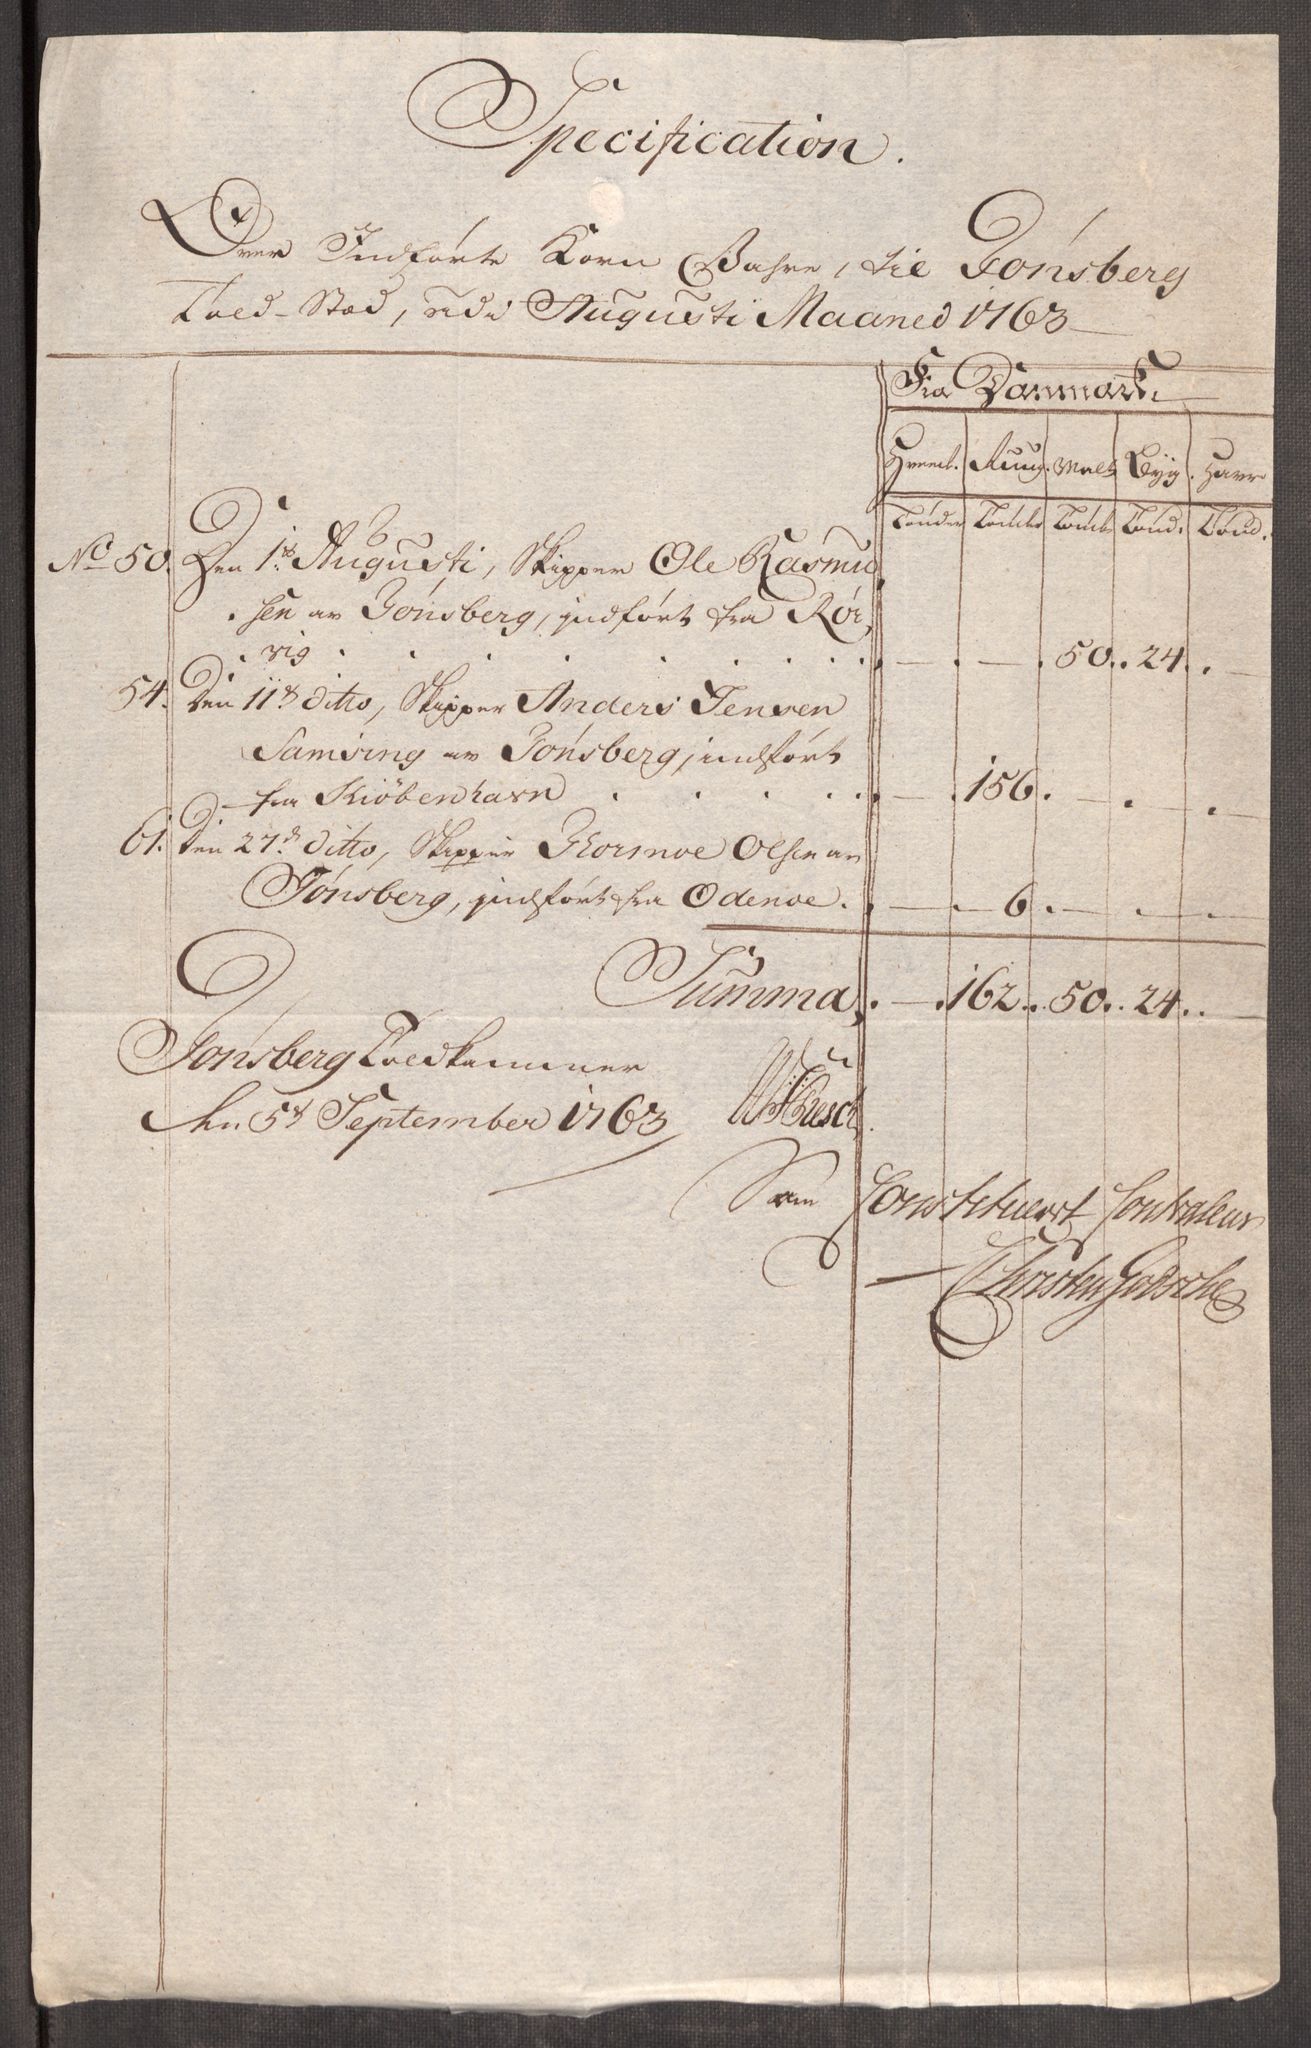 Specification.
Over Indförte Korn Vahre, til Tönsberg
Toed-Stæd, udi Augusti Maaned 1763
Fra Danmark
Hveed. Ruug. Malt Byg. Havr
Tönder Tönder Tönder Tönd. Tönd.
No 50. Den 1te Augusti, Skipper Ole Rasmu
sen av Tönsberg, indfört fra Rör
vig 50. 24.
54. Den 11te ditto, Skipper Anders Jensen
Samsing av Tönsberg, indfört
fra Kiöbenhavn 156.
61. Den 27de ditto, Skipper Thormoe Olsen av
Tönsberg, indfört fra Odense. 6.
Summa 162. 50. 24.
Tönsberg Toldkammer
den 5te September 1763
Som Constitueret Controleur
Christen Godsche